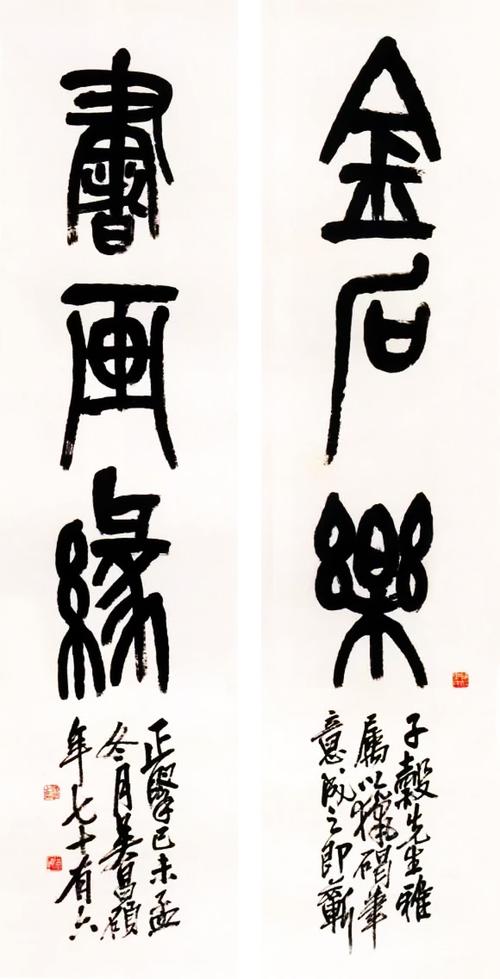 金石樂
書畫緣
子穀先生雅
屬以獵碣筆
意成之即蘄
正擘己未孟
冬月吳昌碩
年七十有六